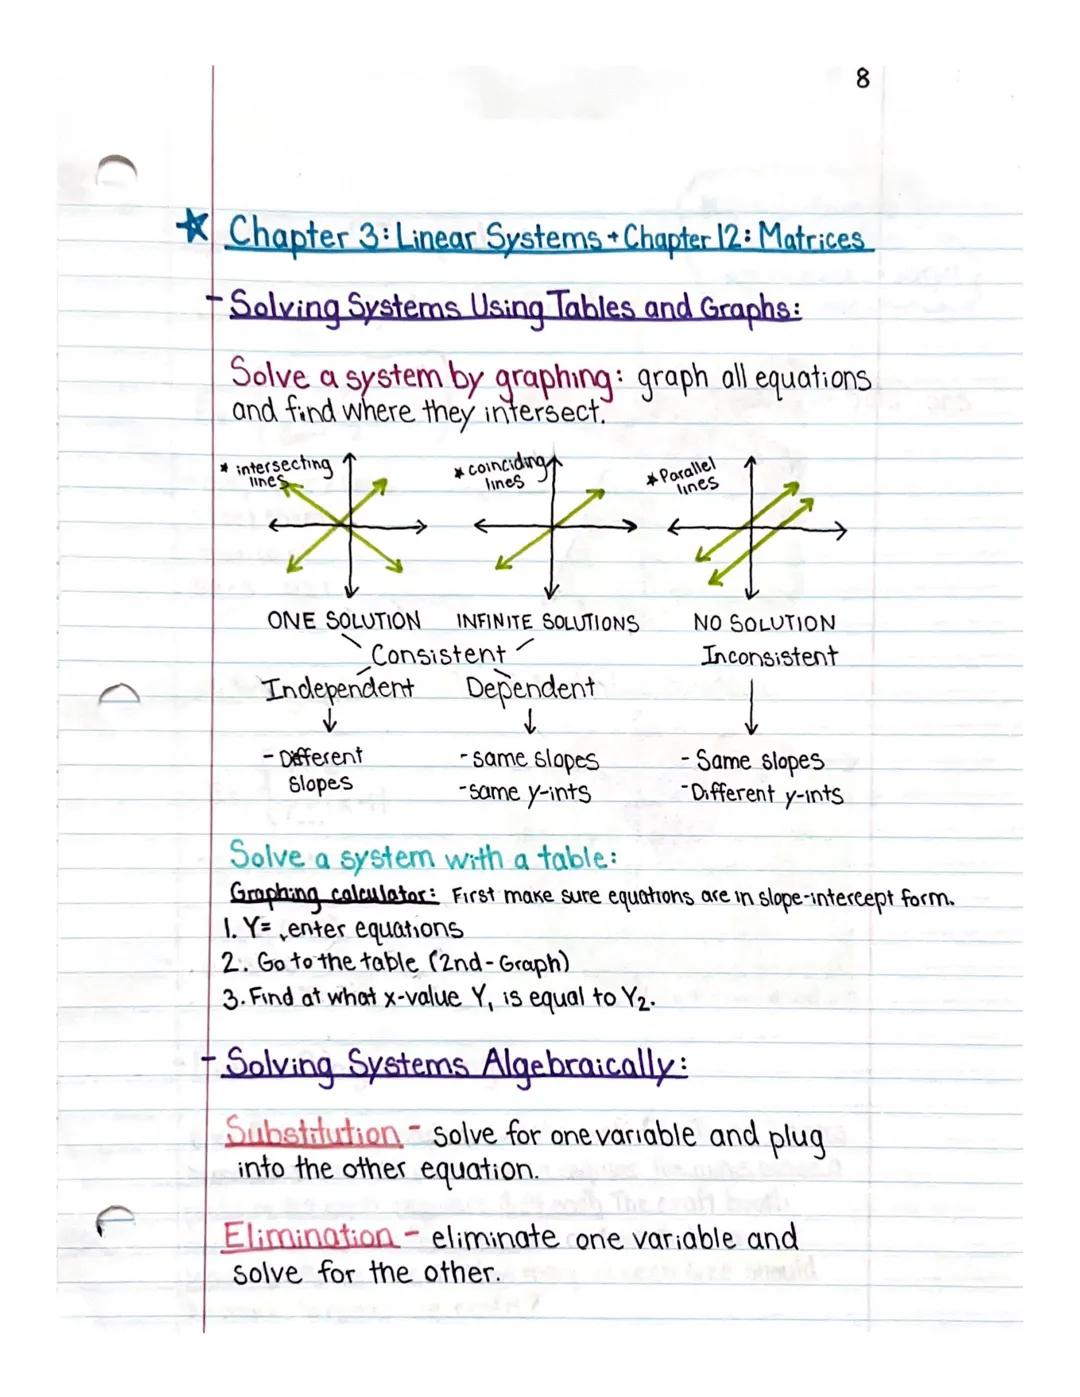 8
Chapter 3: Linear Systems + Chapter 12: Matrices
- Solving Systems Using Tables and Graphs:
Solve a system by graphing: graph all equations
and find where they intersect.
* intersecting lines
* coinciding lines
* Parallel lines
ONE SOLUTION INFINITE SOLUTIONS NO SOLUTION
Consistent Inconsistent
Independent Dependent
- Different - same slopes - Same slopes
Slopes - same y-ints - Different y-ints
Solve a system with a table:
Graphing calculator: First make sure equations are in slope-intercept form.
1. Y= , enter equations
2. Go to the table (2nd-Graph)
3. Find at what x-value Y₁ is equal to Y₂.
- Solving Systems Algebraically:
Substitution - solve for one variable and plug
into the other equation.
Elimination - eliminate one variable and
solve for the other.